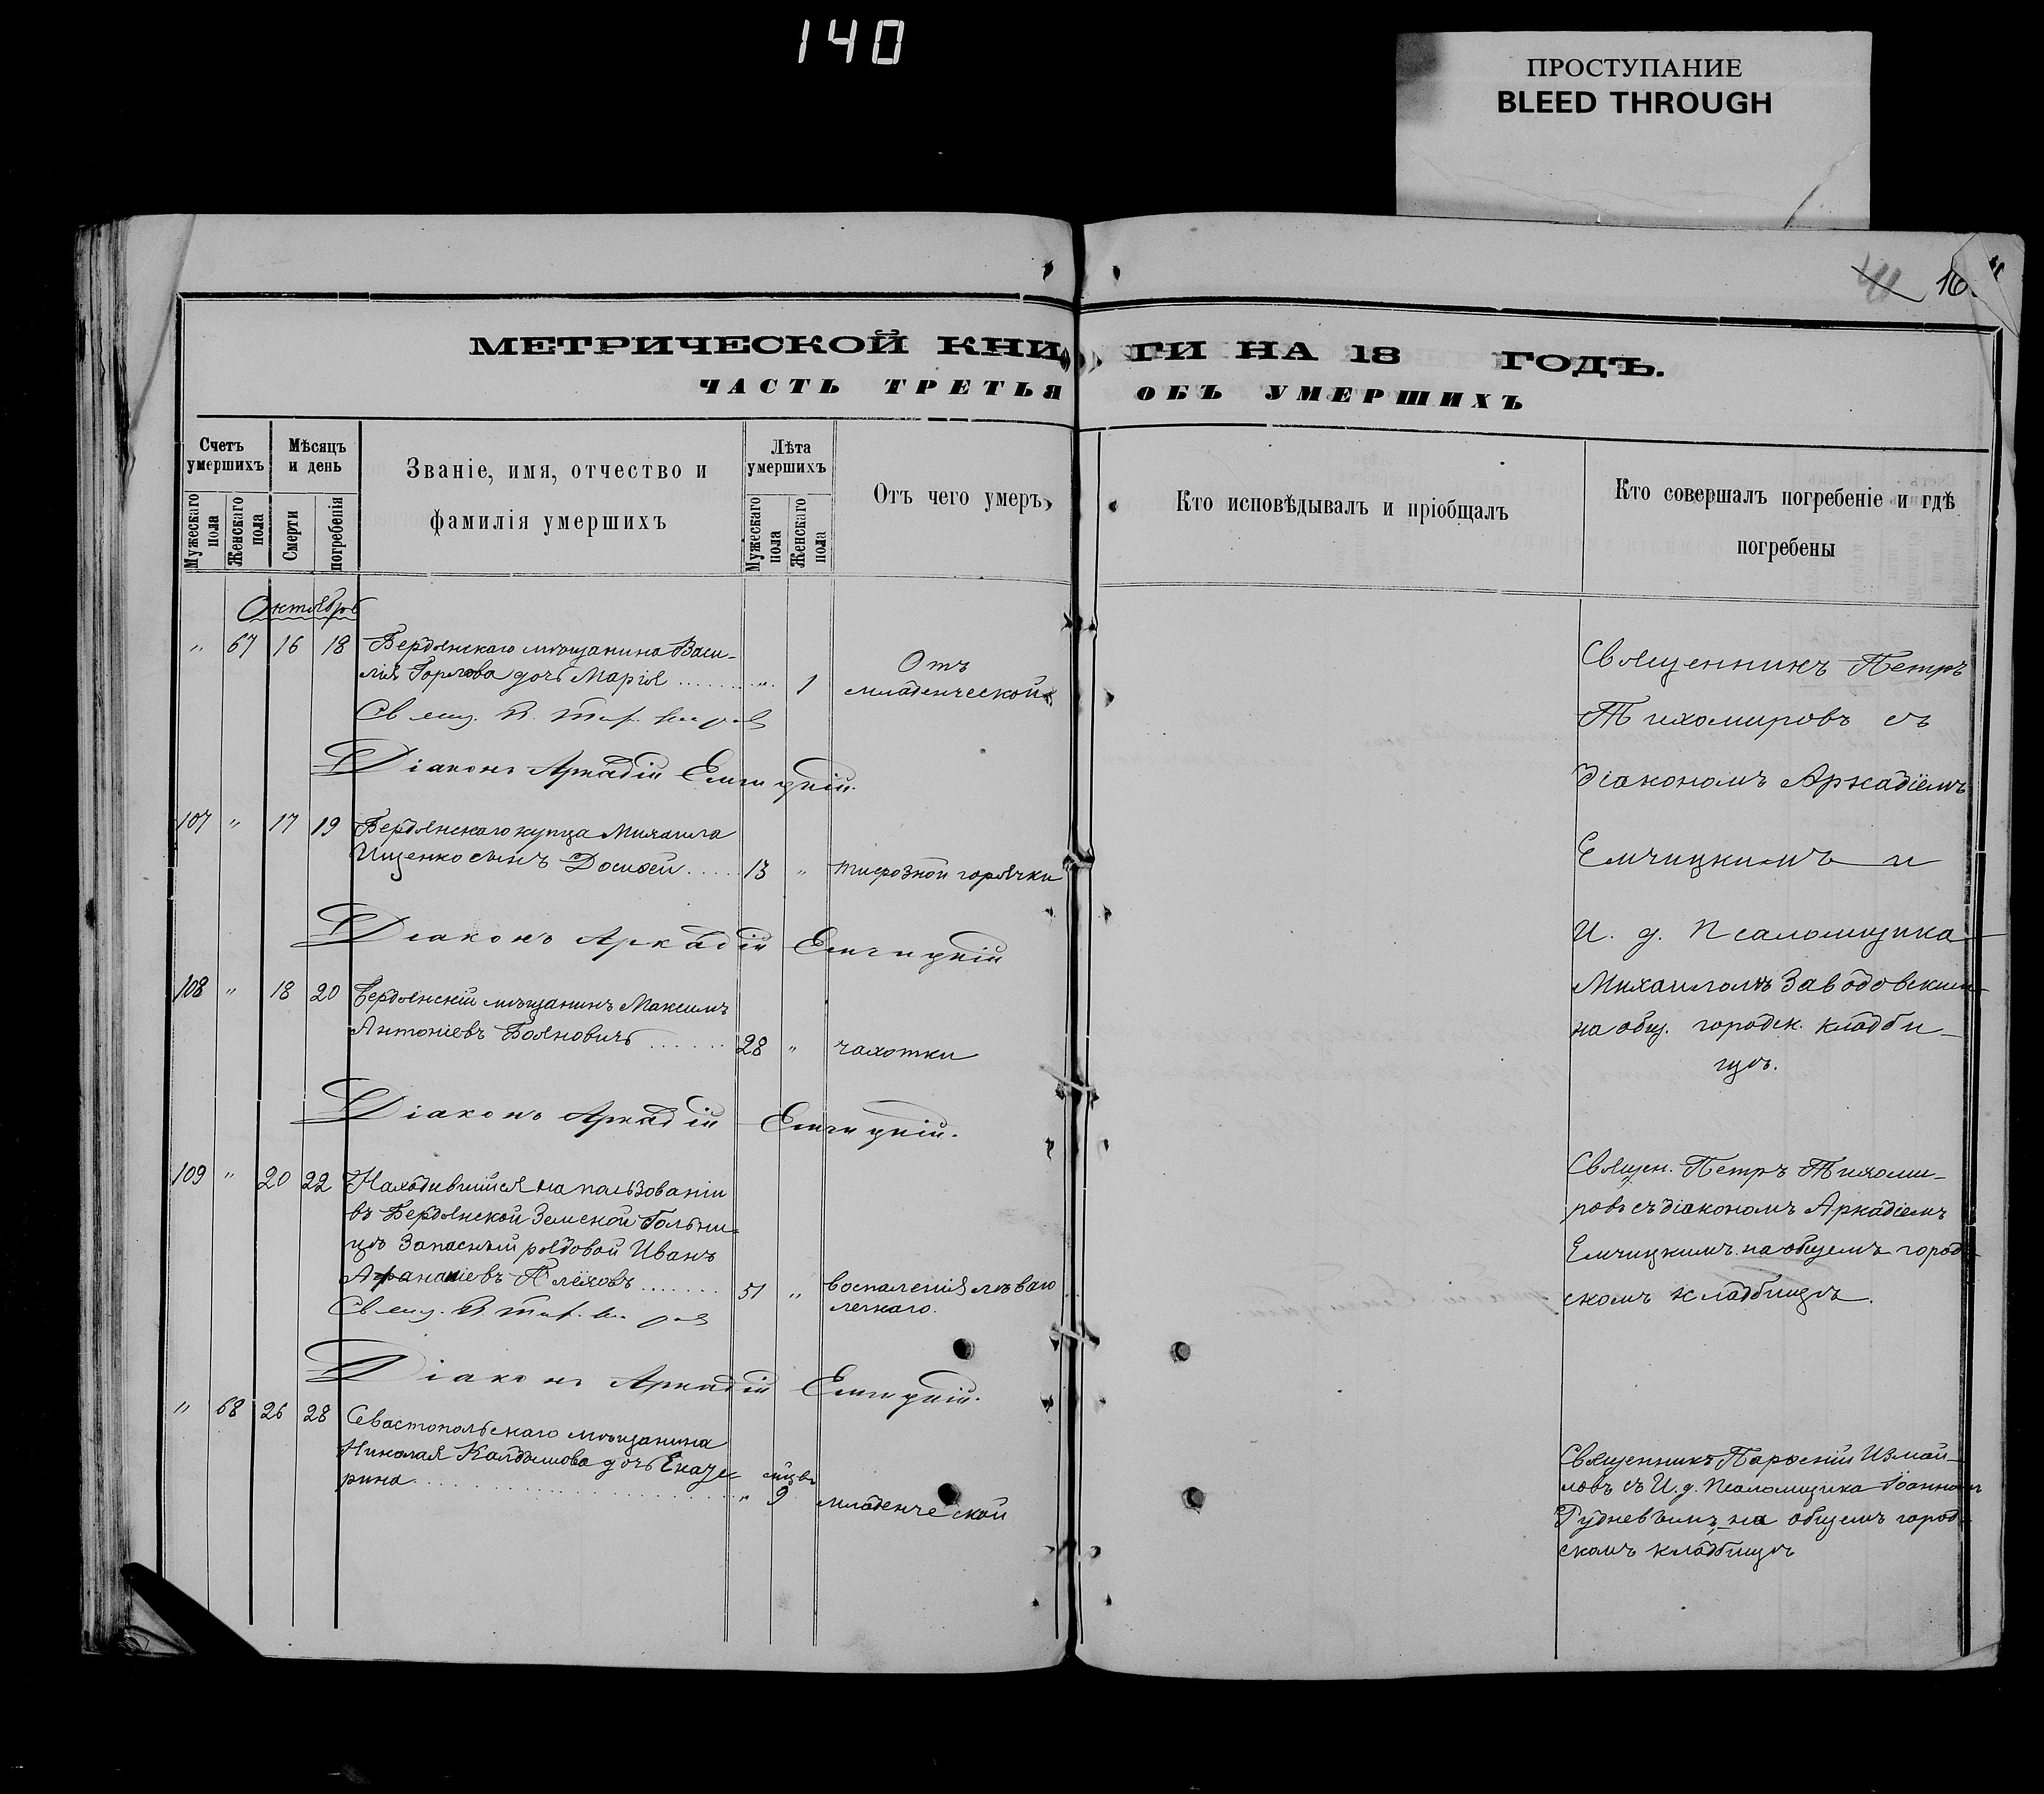 140
ПРОСТУПАНИЕ
BLEED THROUGH
МЕТРИЧЕСКОЙ КНИГИ НА 18 ГОДЪ.
ЧАСТЬ ТРЕТЬЯ ОБЪ УМЕРШИХЪ
Счетъ умершихъ
Мужескаго пола
Женскаго пола
Мѣсяцъ и день
Смерти
погребенія
Званіе, имя, отчество и
фамилія умершихъ
Лѣта умершихъ
Мужескаго пола
Женскаго пола
Отъ чего умеръ
Кто исповѣдывалъ и пріобщалъ
Кто совершалъ погребеніе и гдѣ
погребены
Октябрь
" 67 16 18 Бердянскаго мѣщанина Васи-
лія Горлова дочь Марія " 1 Отъ
младенческой
Діаконъ Аркадій Емчицкій.
Священникъ Петръ
Тихомировъ съ
діакономъ Аркадіемъ
Емчицкимъ и
И. д. Псаломщика
Михаиломъ Заводовским
на общ. городск. кладби-
щѣ.
107 " 17 19 Бердянскаго купца Михаила
Ищенко сынъ Досиѳей 13 " тифозной горячки
Діаконъ Аркадій Емчицкій
108 " 18 20 Бердянскій мѣщанинъ Максимъ
Антоніевъ Бояновичъ 28 " чахотки
Діаконъ Аркадій Емчицкій.
109 " 20 22 Находившійся на пользованіи
въ Бердянской Земской больни-
цѣ Запасный рядовой Иванъ
Афанасіевъ Плёховъ 51 " воспаленія лѣваго
легкаго.
Діаконъ Аркадій Емчицкій.
Священ. Петръ Тихоми-
ровъ съ діакономъ Аркадіемъ
Емчицкимъ на общемъ город-
скомъ кладбищѣ.
" 68 26 28 Севастопольскаго мѣщанина
Николая дочь Екате-
рина " 9 младенческой
Священникъ Парѳеній Измай-
ловъ съ И. д. Псаломщика Іоанном
Рудневымъ на общемъ город-
скомъ кладбищѣ